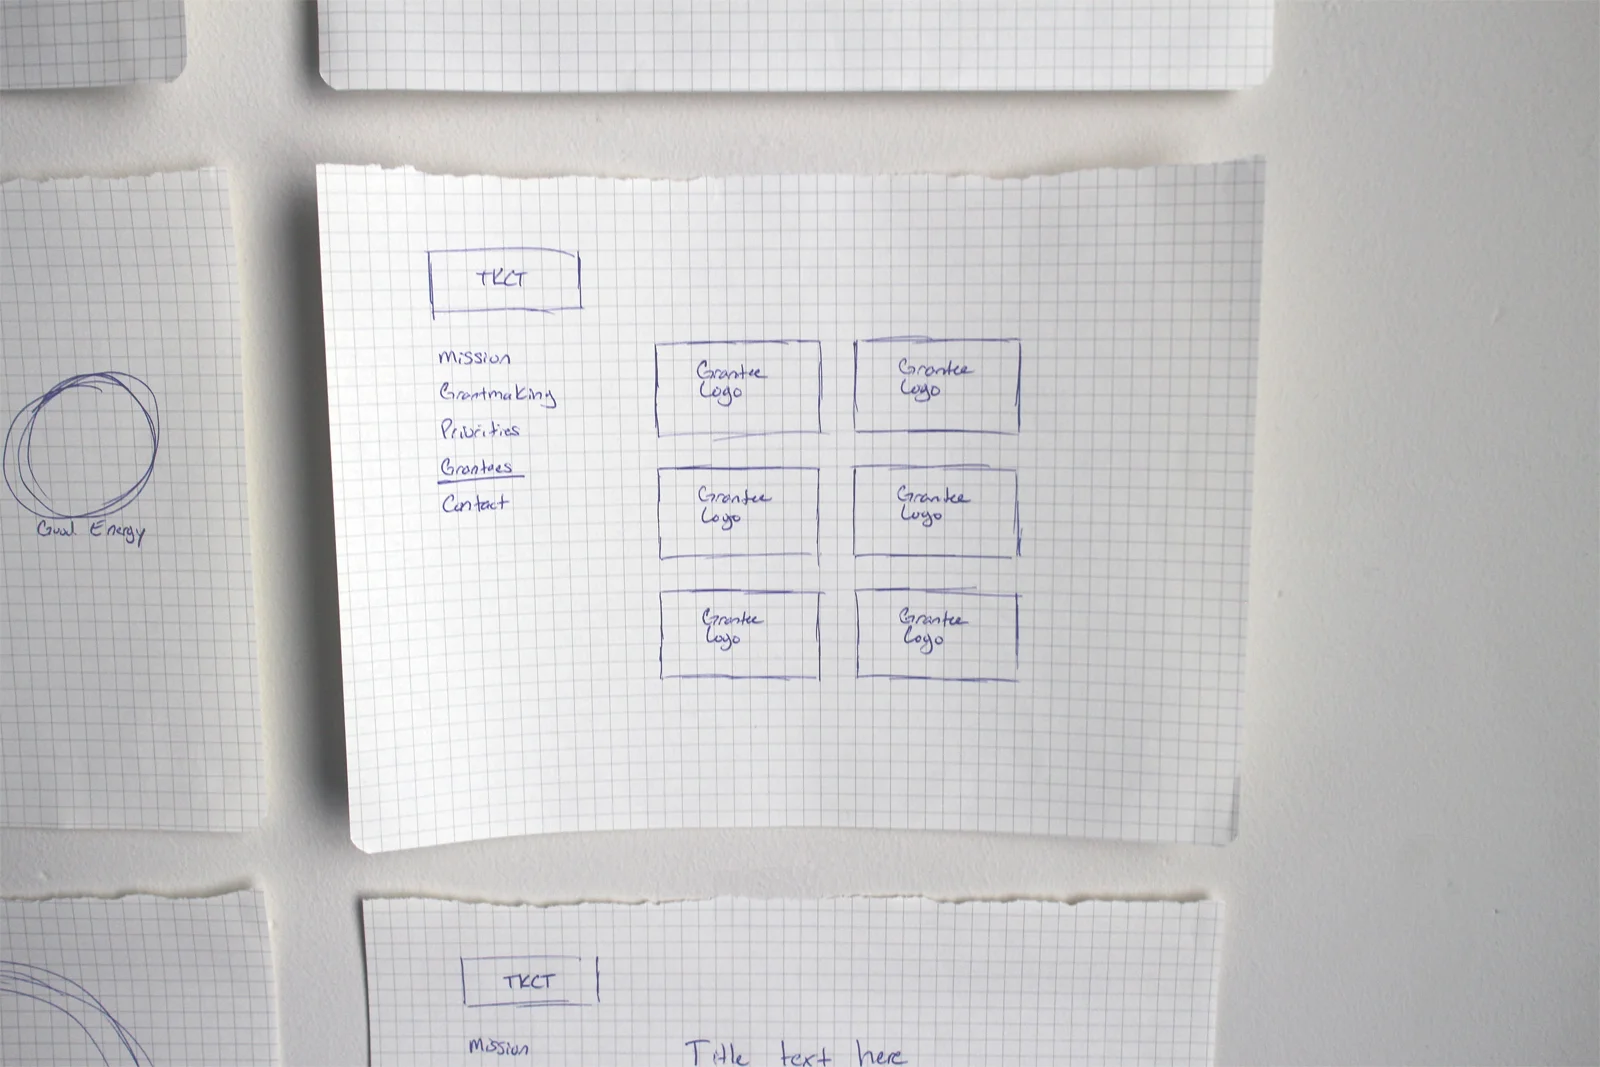 TKCT
Mission
Grantmaking
Priorities
Grantees
Contact
Grantee
Logo
Grantee
Logo
Grantee
Logo
Grantee
Logo
Grantee
Logo
Grantee
Logo
Good Energy
TKCT
Mission
Title text here